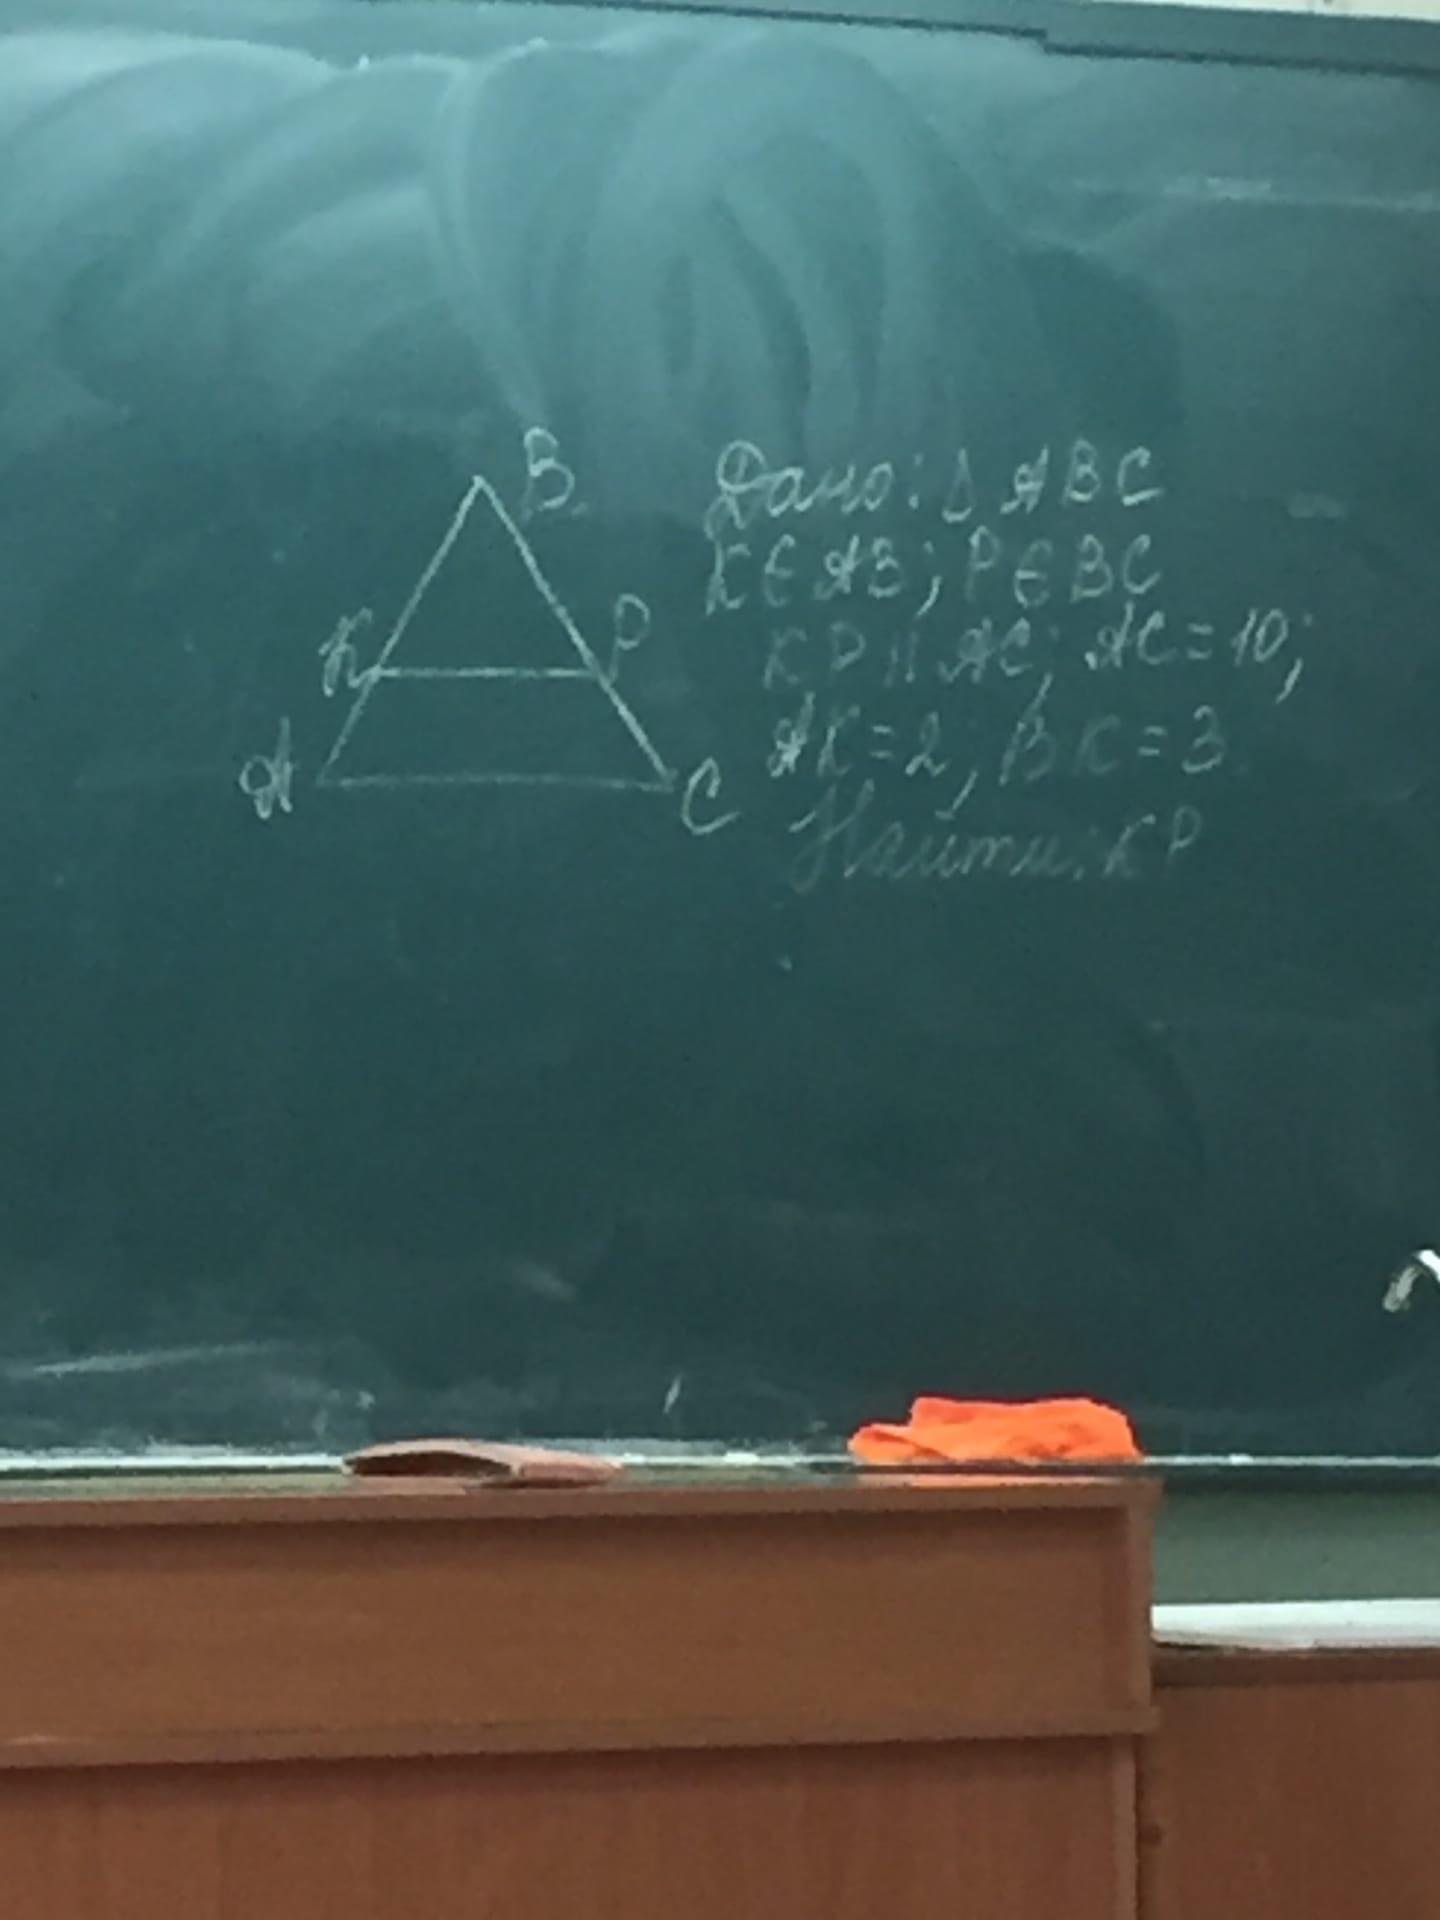 B
K
P
A
C
Дано: Δ ABC
K∈AB; P∈BC
KP || AC; AC=10;
AK=2; BK=3
Найти: KP